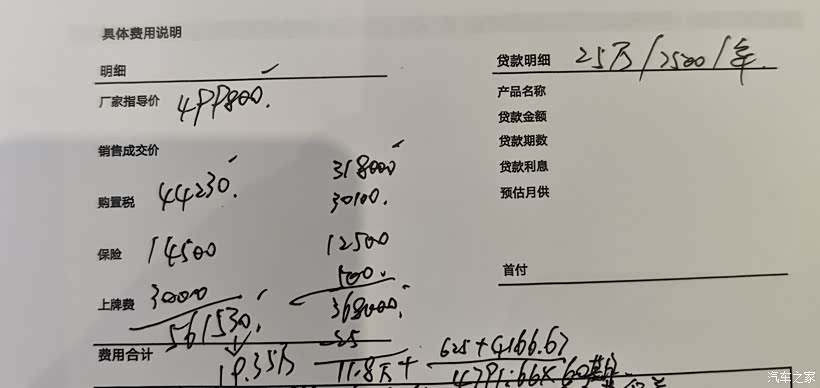 具体费用说明
明细
厂家指导价 499800.
销售成交价 318000
购置税 44230. 30100.
保险 14500 12500
500.
上牌费 3000
561530. 368000.
费用合计 -25
19.35万 11.8万 + 625+4166.67
4791.66×60期
贷款明细 25万/2500/年.
产品名称
贷款金额
贷款期数
贷款利息
预估月供
首付
汽车之家